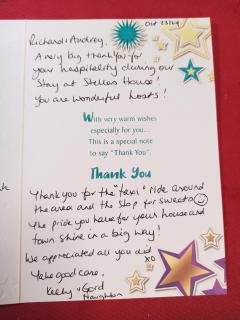 Oct 23/24
Richard & Audrey,
A very big thank you for
your hospitality during our
Stay at Stella's House!
You are wonderful hosts!
With very warm wishes
especially for you...
This is a special note
to say "Thank You".
Thank You
Thank you for the "taxi" ride around
the area and the stop for sweets
The pride you have for your house and
town shine in a big way!
We appreciated all you did
xo
Take good care,
Kelly & Gord
Haughton